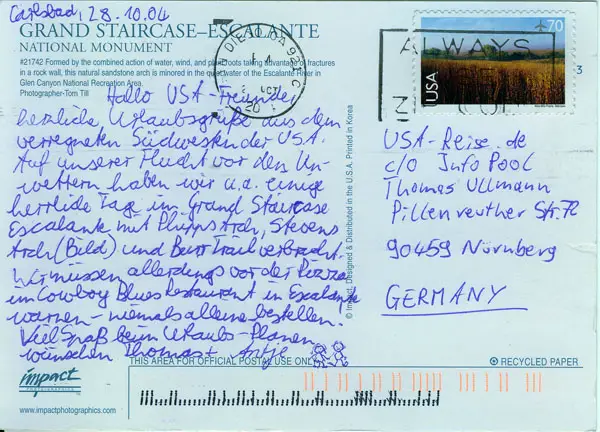 Carlsbad, 28.10.04
GRAND STAIRCASE–ESCALANTE
NATIONAL MONUMENT
#21742 Formed by the combined action of water, wind, and plant roots taking advantage of fractures
in a rock wall, this natural sandstone arch is mirrored in the quiet water of the Escalante River in
Glen Canyon National Recreation Area.
Photographer-Tom Till
Hallo USA-Freunde,
herzliche Urlaubsgrüße aus dem
verregneten Südwesten der USA.
Auf unserer Flucht vor den Un-
wettern haben wir u.a. einige
herrliche Tage im Grand Staircase
Escalante mit Phipps Arch, Stevens
Arch (Bild) und Burr Trail verbracht.
Wir müssen allerdings vor der Pizza
im Cowboy Blues Restaurant in Escalante
warnen - niemals alleine bestellen!
Viel Spaß beim Urlaubs-Planen
wünschen Thomas + Antje
SAN DIEGO CA 921
ALWAYS
USA
70
3
© Impact, Designed & Distributed in the U.S.A. Printed in Korea
USA-Reise.de
c/o Info Pool
Thomas Ullmann
Pillenreuther Str. 72
90459 Nürnberg
GERMANY
THIS AREA FOR OFFICIAL POSTAL USE ONLY
RECYCLED PAPER
impact
www.impactphotographics.com